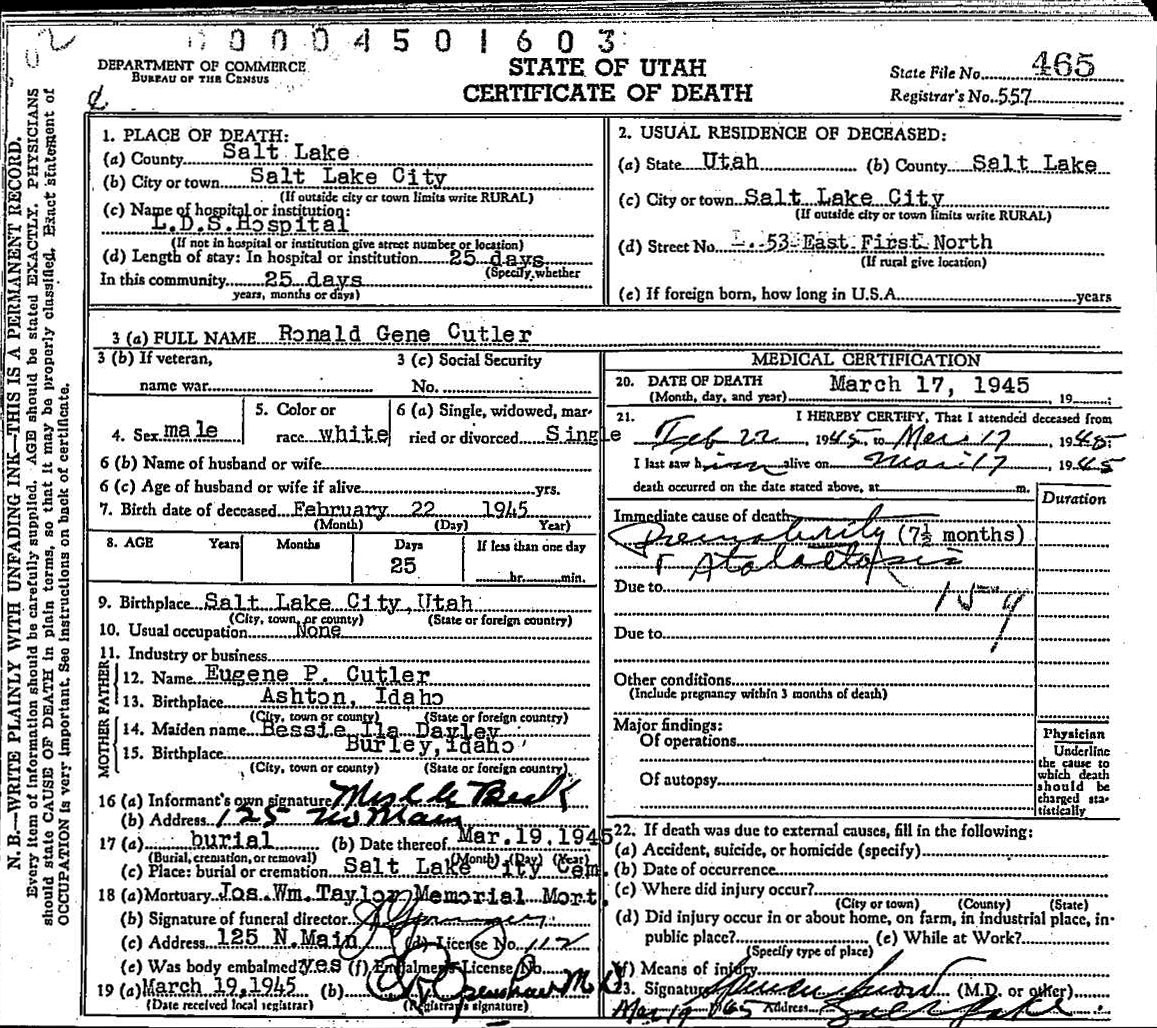 0 0 0 4 5 0 1 6 0 3
DEPARTMENT OF COMMERCE
BUREAU OF THE CENSUS
STATE OF UTAH
CERTIFICATE OF DEATH
State File No. 465
Registrar's No. 557
N.B.—WRITE PLAINLY WITH UNFADING INK—THIS IS A PERMANENT RECORD.
Every item of information should be carefully supplied. AGE should be stated EXACTLY. PHYSICIANS
should state CAUSE OF DEATH in plain terms, so that it may be properly classified. Exact statement of
OCCUPATION is very important. See instructions on back of certificate.
1. PLACE OF DEATH:
(a) County Salt Lake
(b) City or town Salt Lake City
(If outside city or town limits write RURAL)
(c) Name of hospital or institution:
L.D.S.Hospital
(If not in hospital or institution give street number or location)
(d) Length of stay: In hospital or institution 25 days
(Specify whether
In this community 25 days
years, months or days)
2. USUAL RESIDENCE OF DECEASED:
(a) State Utah (b) County Salt Lake
(c) City or town Salt Lake City
(If outside city or town limits write RURAL)
(d) Street No. 53 East First North
(If rural give location)
(e) If foreign born, how long in U.S.A. years
3 (a) FULL NAME Ronald Gene Cutler
3 (b) If veteran, 3 (c) Social Security
name war No.
4. Sex male 5. Color or race white 6 (a) Single, widowed, married or divorced Single
6 (b) Name of husband or wife
6 (c) Age of husband or wife if alive yrs.
7. Birth date of deceased February 22 1945
(Month) (Day) Year)
8. AGE Years Months Days If less than one day
25 hr. min.
9. Birthplace Salt Lake City, Utah
(City, town, or county) (State or foreign country)
10. Usual occupation None
11. Industry or business
FATHER
12. Name Eugene P. Cutler
13. Birthplace Ashton, Idaho
(City, town or county) (State or foreign country)
MOTHER
14. Maiden name Bessie Ila Dayley
15. Birthplace Burley, Idaho
(City, town or county) (State or foreign country)
16 (a) Informant's own signature
(b) Address 125 No Main
17 (a) burial (b) Date thereof Mar.19,1945
(Burial, cremation, or removal) (Month) (Day) (Year)
(c) Place: burial or cremation Salt Lake City Cem.
18 (a) Mortuary Jos. Wm. Taylor Memorial Mort.
(b) Signature of funeral director
(c) Address 125 N.Main (d) License No. 112
(e) Was body embalmed? yes (f) Embalmer's License No.
19 (a) March 19,1945 (b)
(Date received local registrar) (Registrar's signature)
MEDICAL CERTIFICATION
20. DATE OF DEATH March 17, 1945
(Month, day, and year) 19 ;
21. I HEREBY CERTIFY, That I attended deceased from
Feb 22, 1945, to Mar 17, 1945
I last saw him alive on Mar 17, 1945
death occurred on the date stated above, at m.
Duration
Immediate cause of death
Prematurity (7½ months)
Due to
159
Due to
Other conditions
(Include pregnancy within 3 months of death)
Major findings:
Of operations
Of autopsy
Physician
Underline
the cause to
which death
should be
charged sta-
tistically
22. If death was due to external causes, fill in the following:
(a) Accident, suicide, or homicide (specify)
(b) Date of occurrence
(c) Where did injury occur?
(City or town) (County) (State)
(d) Did injury occur in or about home, on farm, in industrial place, in-
public place? (e) While at Work?
(Specify type of place)
(f) Means of injury
23. Signature (M.D. or other)
Address